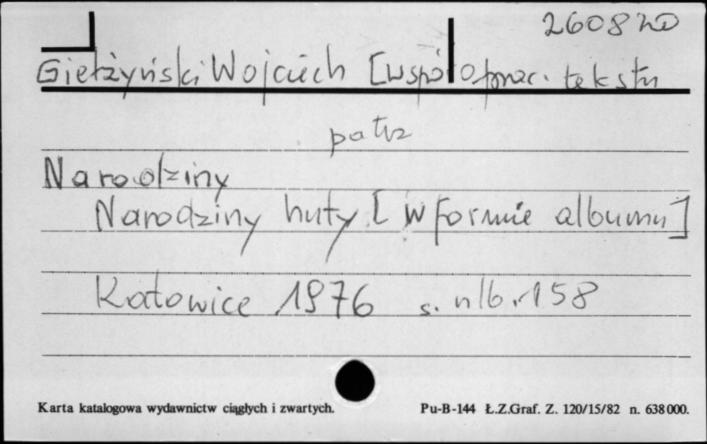 26087D
Giełżyński Wojciech [współoprac. tekstu
patrz
Narodziny
Narodziny huty [w formie albumu]
Katowice 1976 s. nlb. 158
Karta katalogowa wydawnictw ciągłych i zwartych. Pu-B-144 Ł.Z.Graf. Z. 120/15/82 n. 638000.